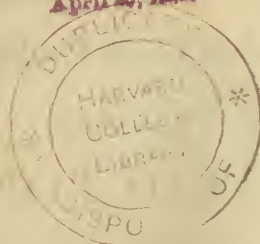 April
DUPLICATE
HARVARD
COLLEGE
LIBRARY
DISPO
OF